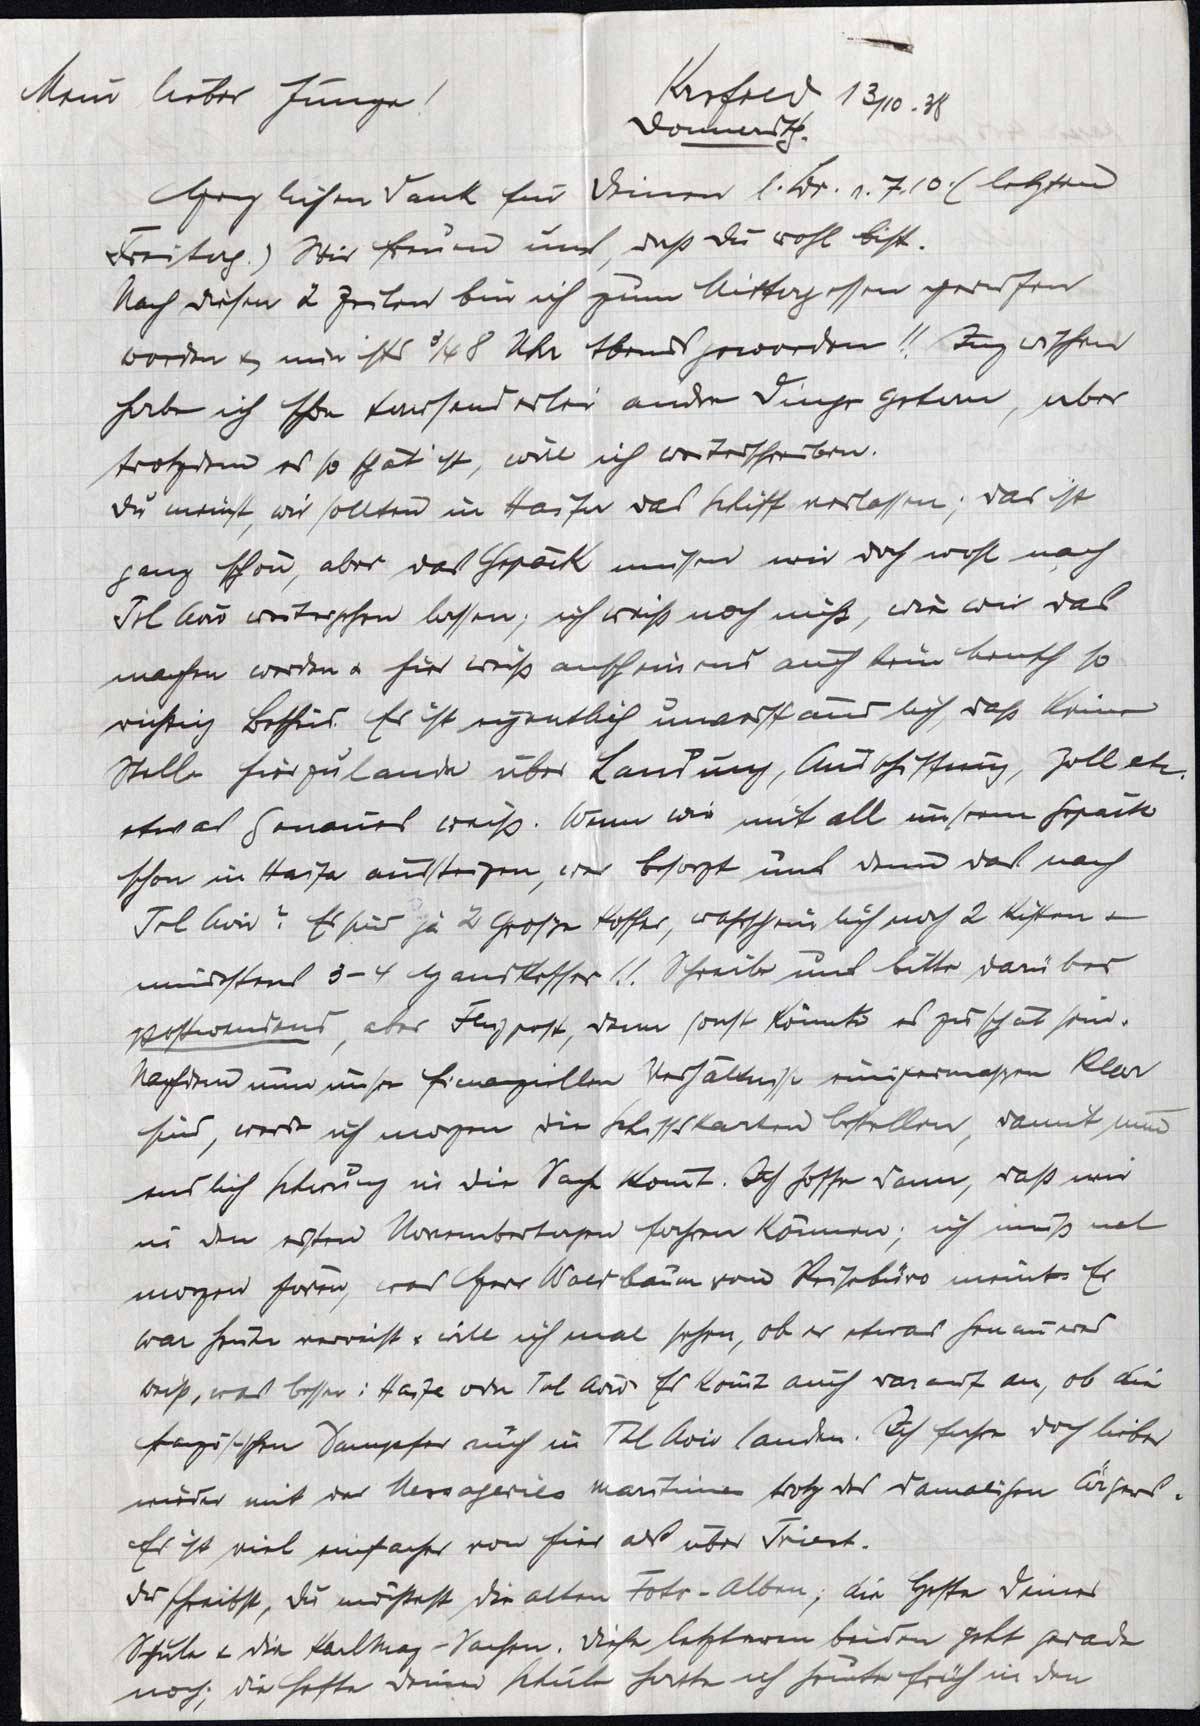 Mein lieber Junge!
Krefeld, 13/10.38
Donnerstg.
Herzlichen Dank für Deinen l. Br. v. 7.10. (letzten
Freitag.) Wir freuen uns, daß Du wohl bist.
Nach diesen 2 Zeilen bin ich zum Mittagessen gerufen
worden & nun ists 3/4 8 Uhr Abends geworden!! Inzwischen
habe ich schon tausenderlei andre Dinge getan, aber
trotzdem es so spät ist, will ich weiterschreiben.
Du meinst, wir sollten in Haifa das Schiff verlassen; das ist
ganz schön, aber das Gepäck müssen wir doch wohl nach
Tel Aviv weitergehen lassen; ich weiß noch nicht, wie wir das
machen werden & hier weiß anscheinend auch kein Mensch so
richtig Bescheid. Es ist eigentlich unverständlich, daß keine
Stelle hierzulande über Landung, Ausschiffung, Zoll etc.
etwas Genaues weiß. Wenn wir mit all unserem Gepäck
schon in Haifa aussteigen, wer besorgt uns denn das nach
Tel Aviv? Es sind ja 2 große Koffer, wahrscheinlich noch 2 Kisten &
mindestens 3-4 Handkoffer!!! Schreibe uns bitte darüber
postwendend, aber Flugpost, denn sonst könnte es zu spät sein.
Nachdem nun unsre finanziellen Verhältnisse einigermaßen klar
sind, werde ich morgen die Schiffskarten bestellen, damit nun
endlich Schwung in die Sache kommt. Ich hoffe dann, daß wir
in den ersten Novembertagen fahren können; ich muß mal
morgen hören, was Herr Waldbaum vom Reisebüro meint. Er
war heute verreist & will ich mal sehen, ob er etwas Genaueres
weiß, was besser: Haifa oder Tel Aviv. Es kommt auch darauf an, ob die
französischen Dampfer auch in Tel Aviv landen. Ich fahre doch lieber
wieder mit der Messageries maritimes trotz des damaligen Ärgers.
Es ist viel einfacher von hier als über Triest.
Du schreibst, Du möchtest die alten Foto-Alben; die Hefte Deiner
Schule & die Karl May-Sachen. Diese letzteren beiden geht gerade
noch; die Hefte Deiner Schule hatte ich heute früh in den